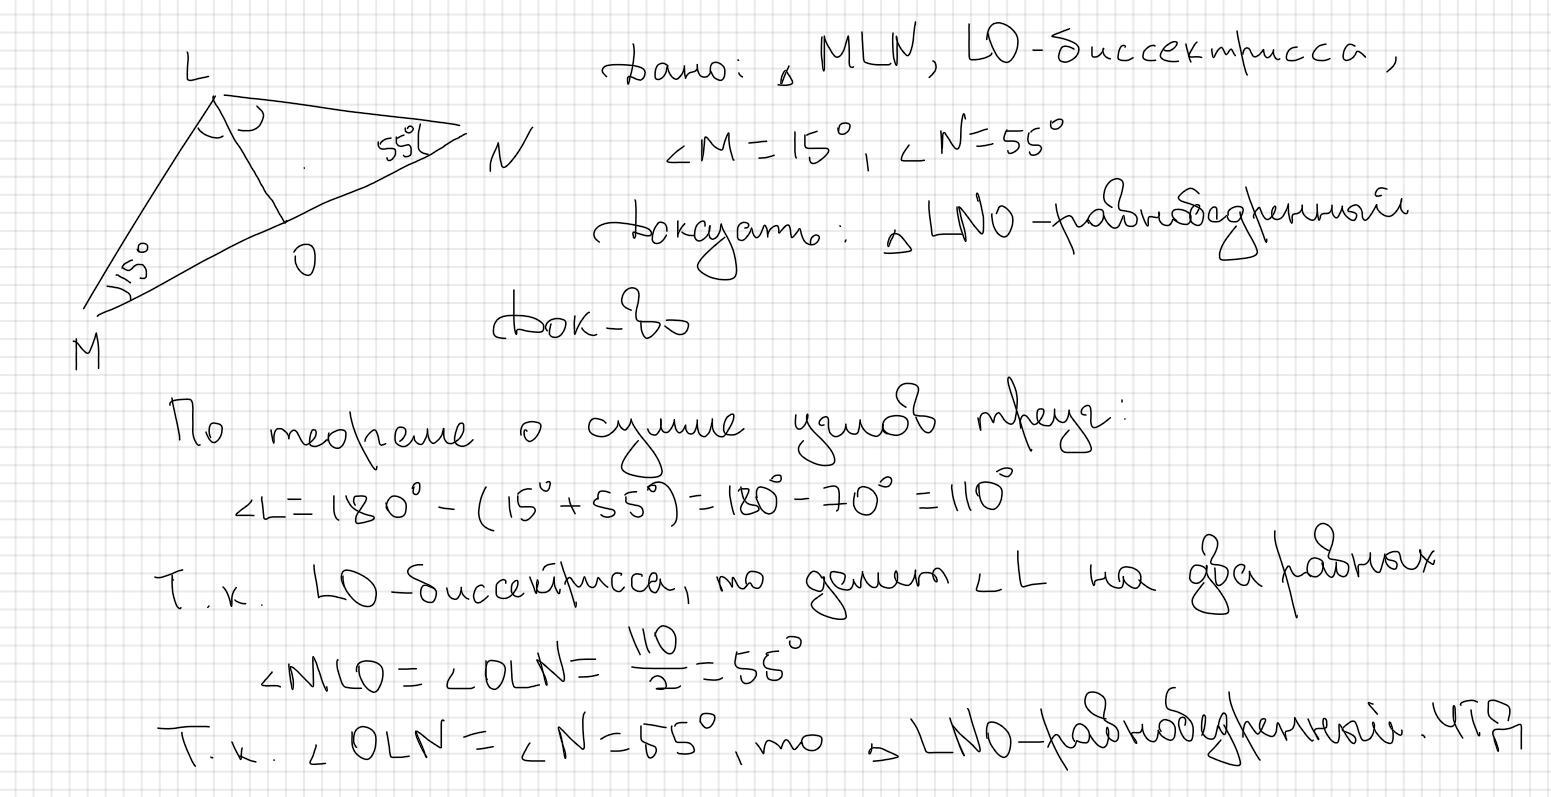 L
Дано: △ MLN, LO-биссектрисса,
55°
N
∠M=15°, ∠N=55°
Доказать: △ LNO-равнобедренный
15°
O
M
Док-во
По теореме о сумме углов треуг:
∠L=180°-(15°+55°)=180°-70°=110°
Т.к. LO-биссектрисса, то делит ∠L на два равных
∠MLO=∠OLN=110/2=55°
Т.к. ∠OLN=∠N=55°, то △ LNO-равнобедренный. ЧТД